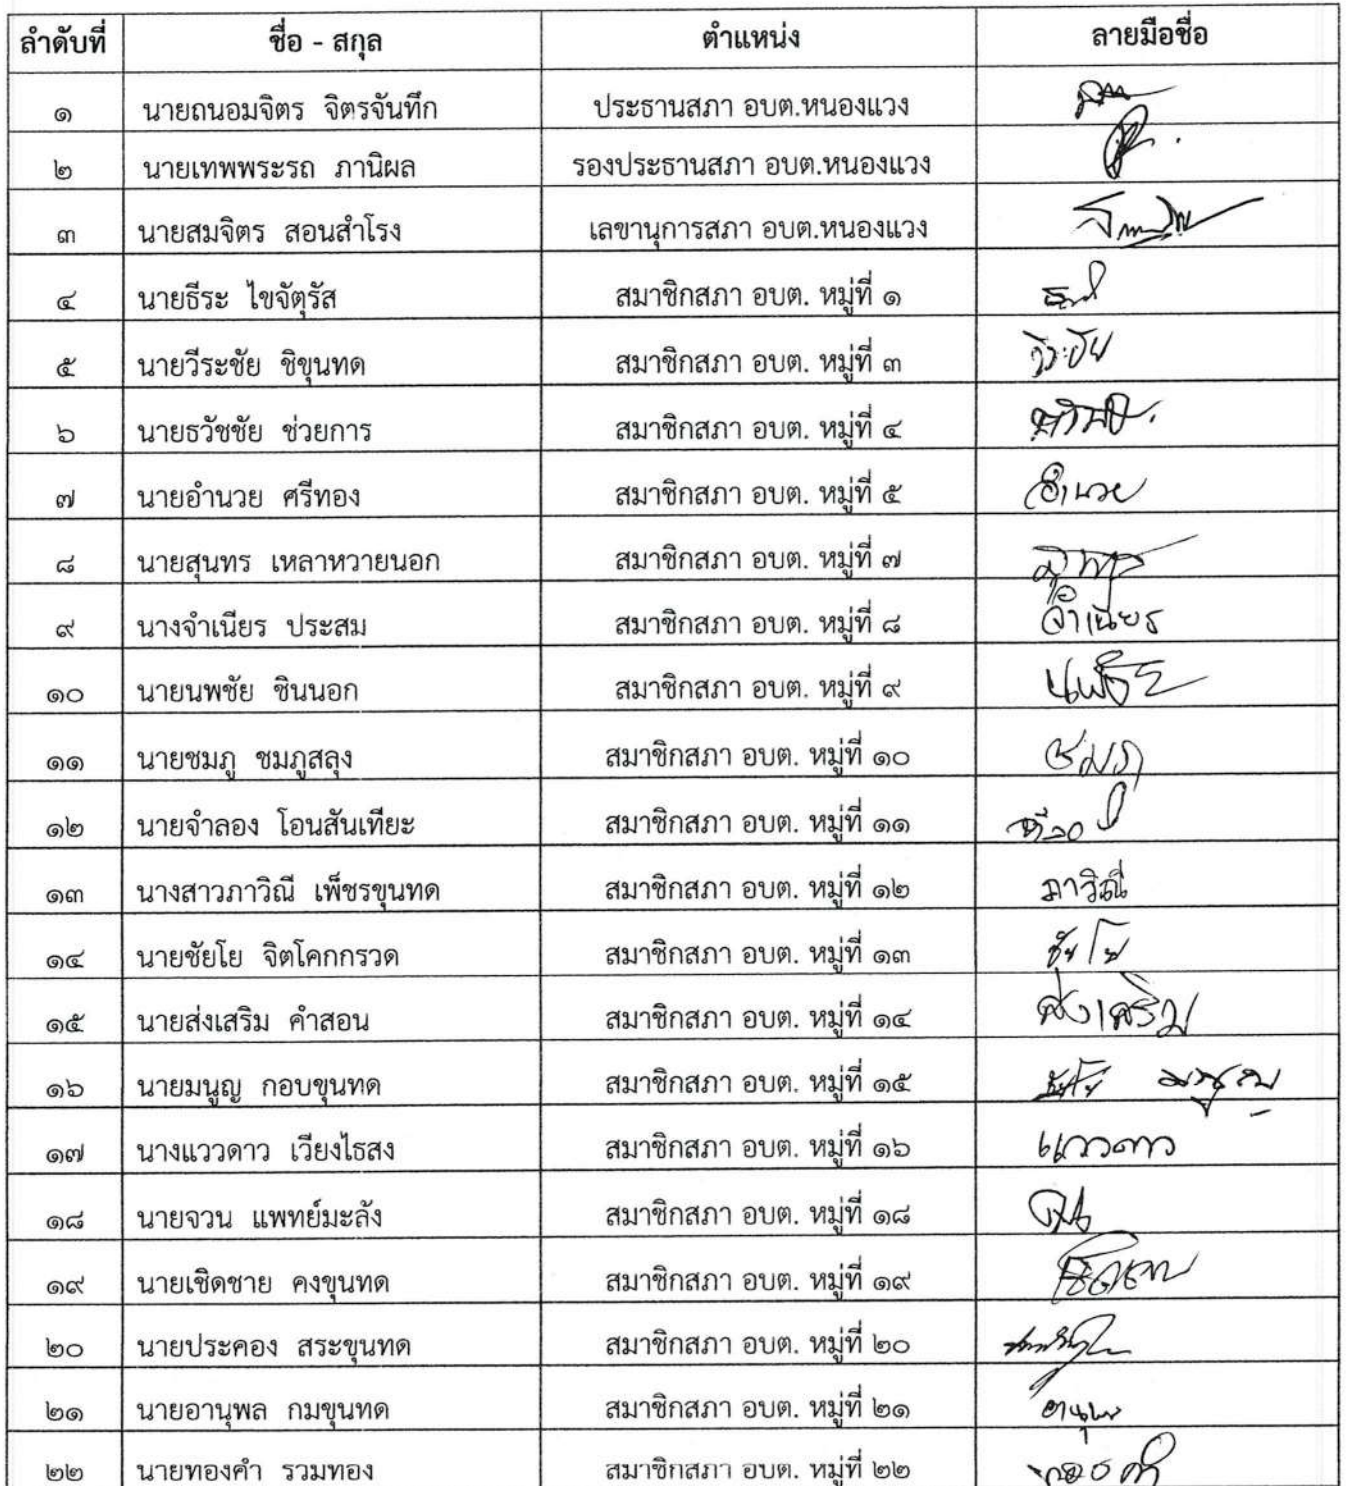 ลำดับที่ ชื่อ - สกุล ตำแหน่ง ลายมือชื่อ
๑ นายถนอมจิตร จิตรจันทึก ประธานสภา อบต.หนองแวง
๒ นายเทพพระรถ ภานิผล รองประธานสภา อบต.หนองแวง
๓ นายสมจิตร สอนสำโรง เลขานุการสภา อบต.หนองแวง
๔ นายธีระ ไขจัตุรัส สมาชิกสภา อบต. หมู่ที่ ๑
๕ นายวีระชัย ชิขุนทด สมาชิกสภา อบต. หมู่ที่ ๓ วีระชัย
๖ นายธวัชชัย ช่วยการ สมาชิกสภา อบต. หมู่ที่ ๔
๗ นายอำนวย ศรีทอง สมาชิกสภา อบต. หมู่ที่ ๕ อำนวย
๘ นายสุนทร เหลาหวายนอก สมาชิกสภา อบต. หมู่ที่ ๗
๙ นางจำเนียร ประสม สมาชิกสภา อบต. หมู่ที่ ๘ จำเนียร
๑๐ นายนพชัย ชินนอก สมาชิกสภา อบต. หมู่ที่ ๙ นพชัย
๑๑ นายชมภู ชมภูสลุง สมาชิกสภา อบต. หมู่ที่ ๑๐ ชมภู
๑๒ นายจำลอง โอนสันเทียะ สมาชิกสภา อบต. หมู่ที่ ๑๑
๑๓ นางสาวภาวิณี เพ็ชรขุนทด สมาชิกสภา อบต. หมู่ที่ ๑๒ ภาวิณี
๑๔ นายชัยโย จิตโคกกรวด สมาชิกสภา อบต. หมู่ที่ ๑๓ ชัยโย
๑๕ นายส่งเสริม คำสอน สมาชิกสภา อบต. หมู่ที่ ๑๔ ส่งเสริม
๑๖ นายมนูญ กอบขุนทด สมาชิกสภา อบต. หมู่ที่ ๑๕ มนูญ
๑๗ นางแววดาว เวียงไธสง สมาชิกสภา อบต. หมู่ที่ ๑๖ แววดาว
๑๘ นายจวน แพทย์มะลัง สมาชิกสภา อบต. หมู่ที่ ๑๘
๑๙ นายเชิดชาย คงขุนทด สมาชิกสภา อบต. หมู่ที่ ๑๙
๒๐ นายประคอง สระขุนทด สมาชิกสภา อบต. หมู่ที่ ๒๐
๒๑ นายอานุพล กมขุนทด สมาชิกสภา อบต. หมู่ที่ ๒๑ อานุพล
๒๒ นายทองคำ รวมทอง สมาชิกสภา อบต. หมู่ที่ ๒๒